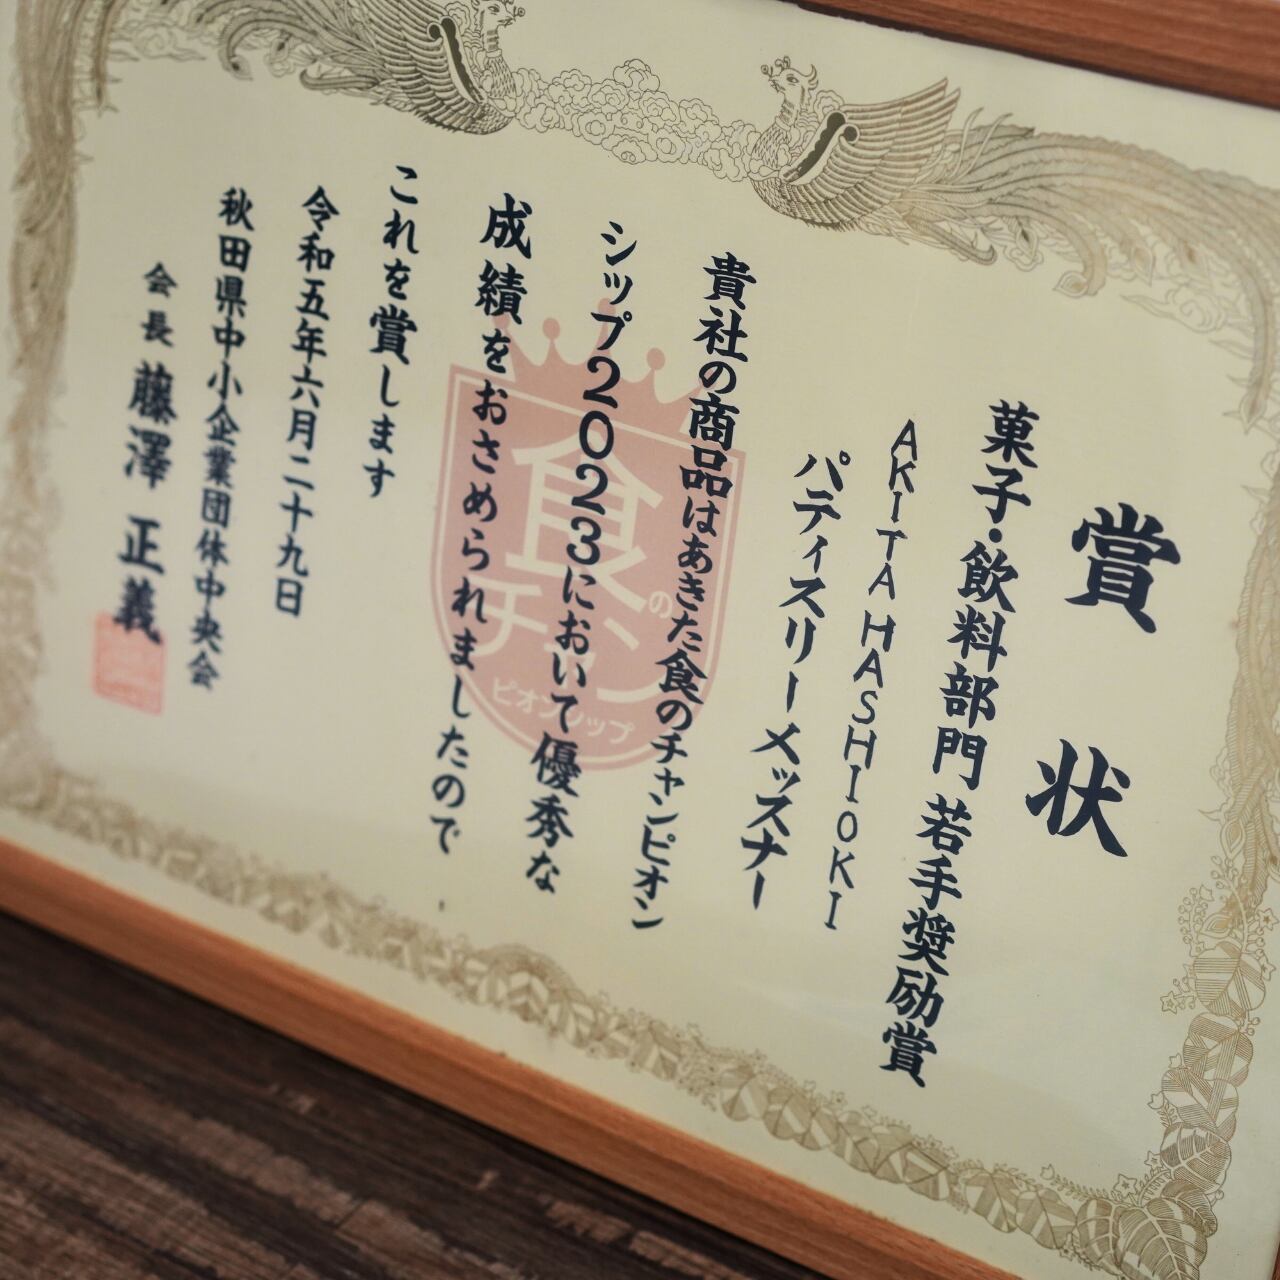 賞状
菓子・飲料部門 若手奨励賞
AKITA HASHIOKI
パティスリーメッスナー
貴社の商品はあきた食のチャンピオン
シップ2023において優秀な
成績をおさめられましたので
これを賞します
令和五年六月二十九日
秋田県中小企業団体中央会
会長 藤澤 正義
食の
チャン
ピオンシップ